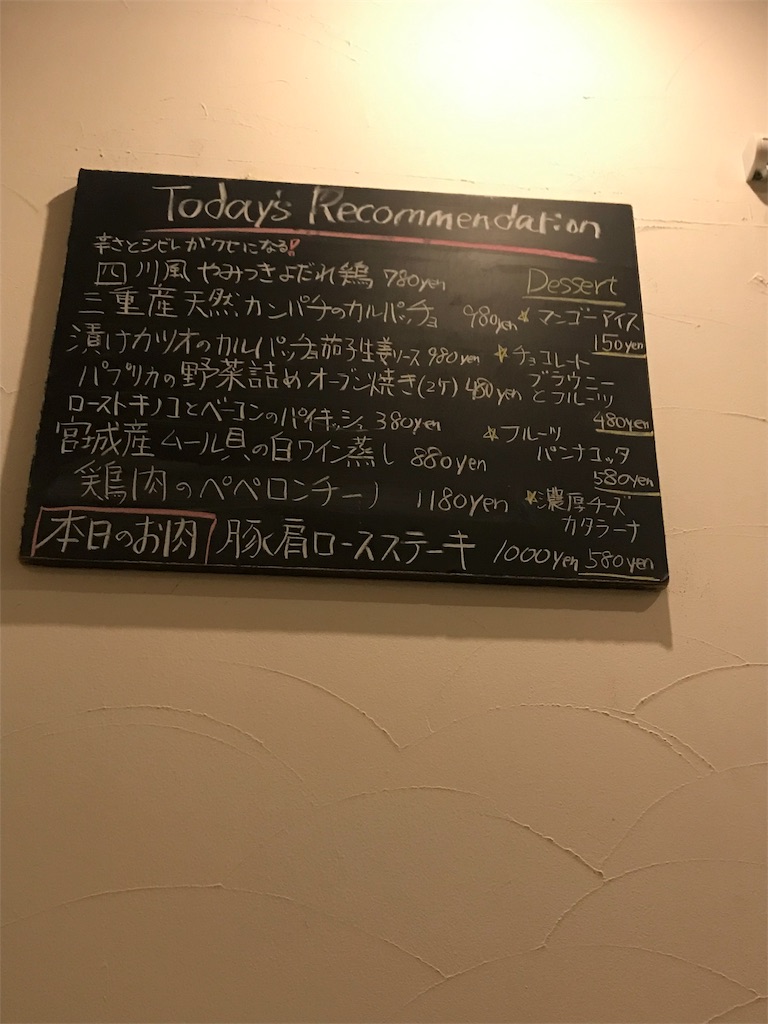 Today's Recommendation
辛さとシビレがクセになる!
四川風 やみつきよだれ鶏 780yen
三重産天然カンパチのカルパッチョ 980yen
漬けカツオのカルパッチョ茄子生姜ソース 980yen
パプリカの野菜詰めオーブン焼き(2ケ) 480yen
ローストキノコとベーコンのパイキッシュ 380yen
宮城産ムール貝の白ワイン蒸し 880yen
鶏肉のペペロンチーノ 1180yen
本日のお肉 豚肩ロースステーキ 1000yen
Dessert
☆マンゴーアイス
150yen
☆チョコレート
ブラウニー
とフルーツ
480yen
☆フルーツ
パンナコッタ
580yen
☆濃厚チーズ
カタラーナ
580yen